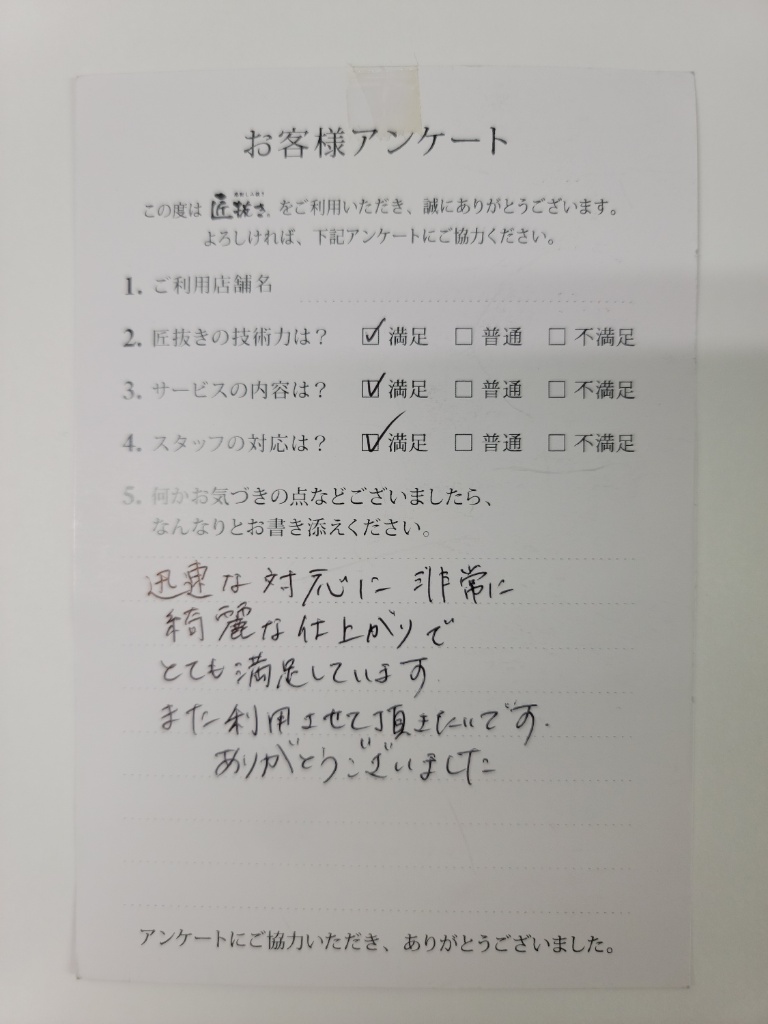 お客様アンケート
この度は 匠抜き をご利用いただき、誠にありがとうございます。
よろしければ、下記アンケートにご協力ください。
1. ご利用店舗名
2. 匠抜きの技術力は？ ☑ 満足 □ 普通 □ 不満足
3. サービスの内容は？ ☑ 満足 □ 普通 □ 不満足
4. スタッフの対応は？ ☑ 満足 □ 普通 □ 不満足
5. 何かお気づきの点などございましたら、
なんなりとお書き添えください。
迅速な対応に 非常に
綺麗な仕上がりで
とても満足しています
また利用させて頂きたいです.
ありがとうございました
アンケートにご協力いただき、ありがとうございました。